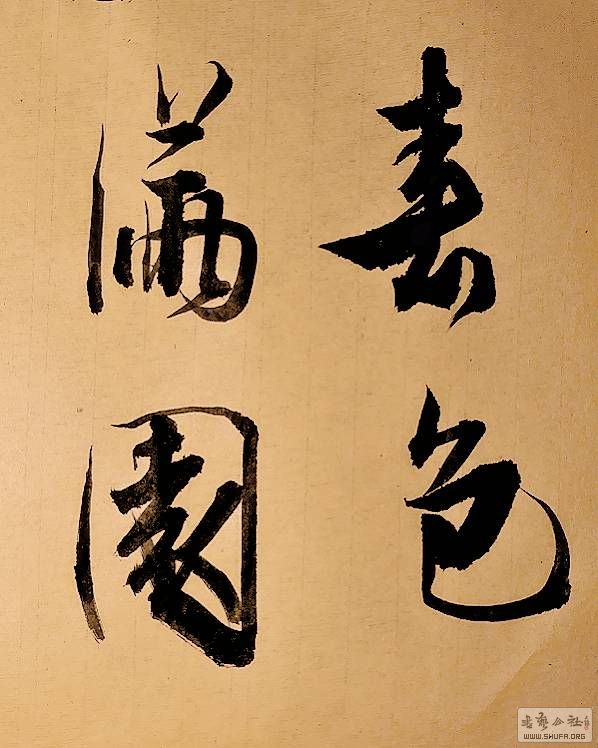 春色
滿園
书艺公社
WWW.SHUFA.ORG